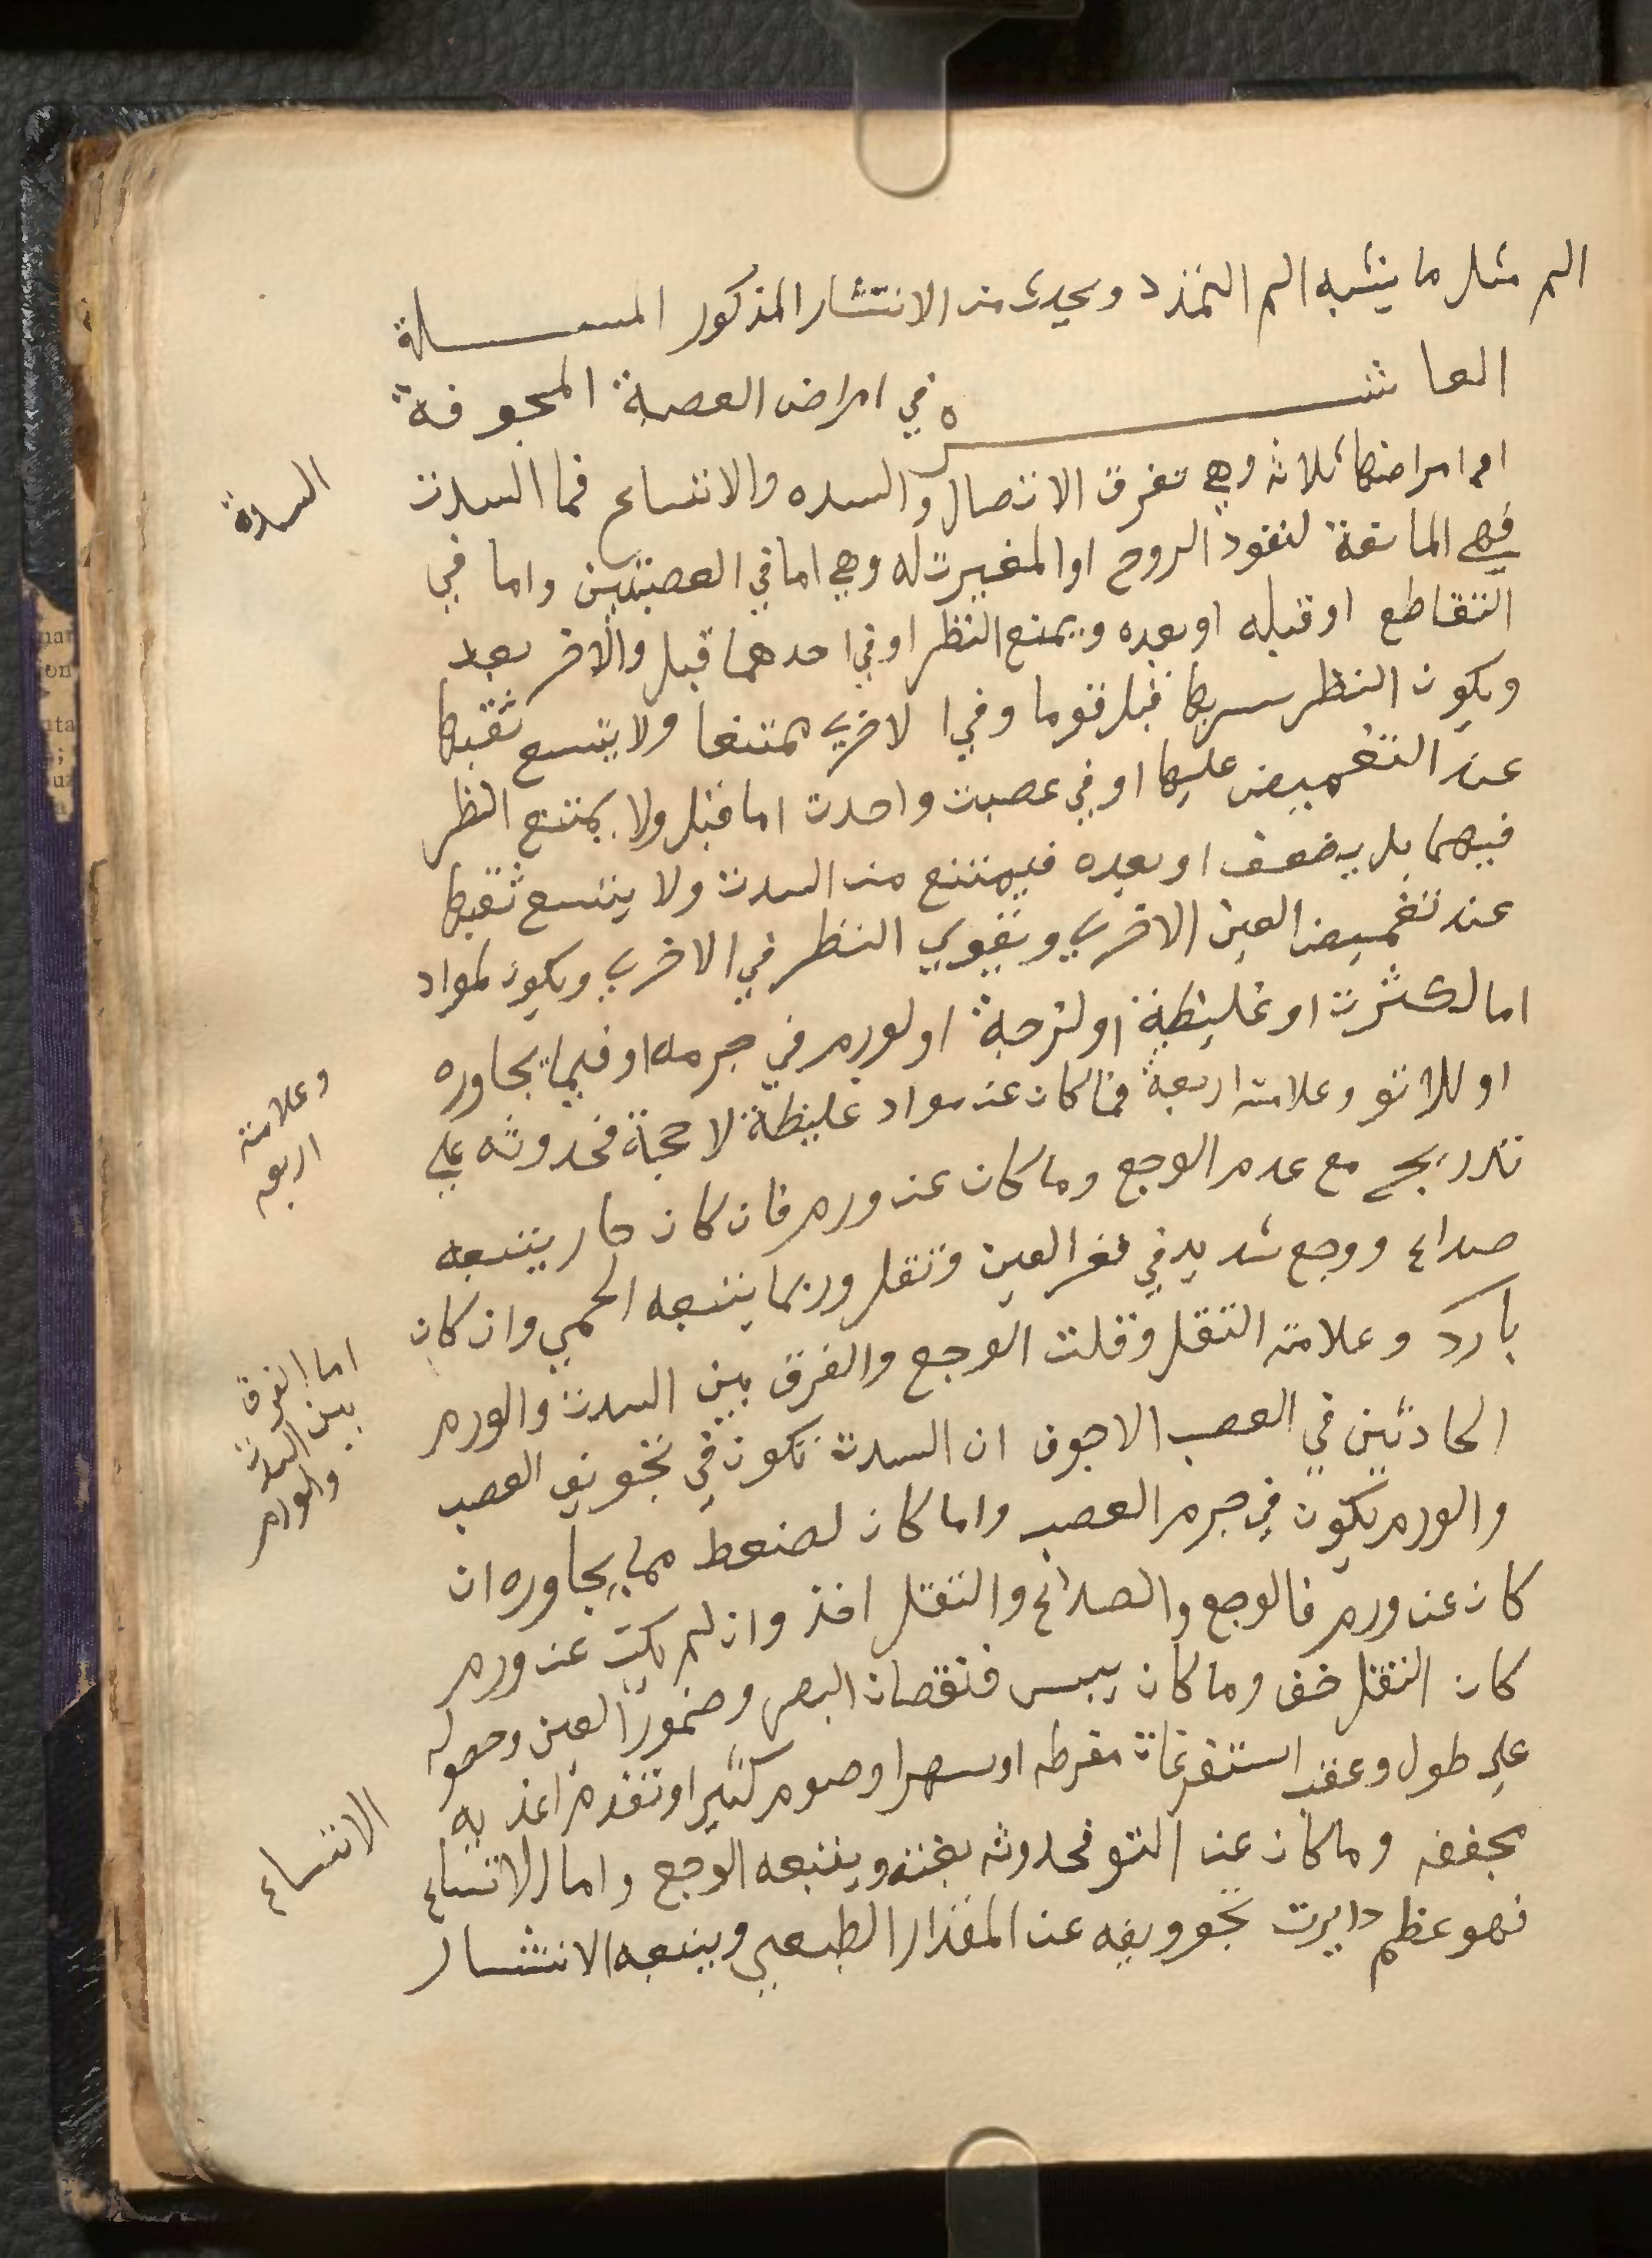 الم مثل ما يشبه الم التمذد ويحدث من الانتشار المذكور المسلة
العاشره في امراض العصبة المجوفة
اما امراضها ثلاثه وهي تفرق الاتصال والسده والاتساع فما السدت
السدة
فهي المانعة لنفود الروح او المغيرت له وهي اما في العصبتين واما في
التقاطع او قبله او بعده ويمنع النظر او في احدهما قبل والاخر بعد
ويكون النظر سريعا قبل قوما وفي الاخري ممتنعا ولا يتسع ثقبها
عند التغميض عليها او في عصبت واحدت اما قبل ولا يمتنع النظر
فيهما بل يضعف او بعده فيمتنع من السدت ولا يتسع ثقبها
عند تغميض العين الاخري ويقوي النظر في الاخري ويكون لمواد
اما لكثرت او غليظة او لزجة او لورم في جرمه او فيما يجاوره
او للاتو وعلامته اربعة فما كان عن مواد غليظة لاحجة فحدوثه علي
وعلامته
اربعه
تدريج مع عدم الوجع وما كان عن ورم فان كان حار يتبعه
صداع ووجع شديد في قعر العين وتقل وربما يتبعه الحمي وان كان
بارد وعلامته التقل وقلت الوجع والفرق بين السدت والورم
اما الفرق
بين السدت
والورم
الحادثين في العصب الاجوف ان السدت تكون في تجويف العصب
والورم يكون في جرم العصب واما كان لضعط مما يجاوره ان
كان عن ورم فالوجع والصداع والتقل اخذ وان لم يكن عن ورم
كان التقل خف وما كان يبس فنقصان البصر وضمور العين وحصوله
علي طول وعقب استفرغات مفرطه او سهر او صوم كثير او تقدم اغذيه
مجففه وما كان عن التو فحدوثه بغته ويتبعه الوجع واما الاتساع
الاتساع
فهو عظم دايرت تجوويفه عن المقدار الطبعي ويتبعه الانتشار